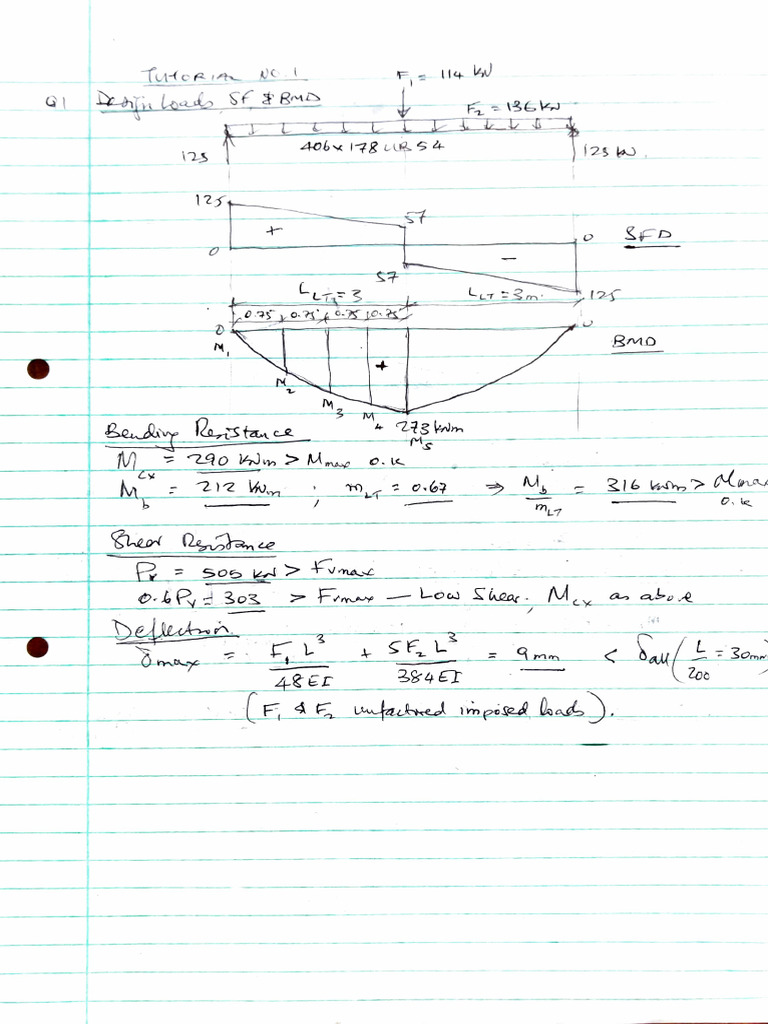 TUTORIAL NO. 1
F1 = 114 kN
Q1 Design Loads, SF & BMD
F2 = 136 kN
406 x 178 UB 54
125
125 kN.
125
57
+
0
0
SFD
57
-
125
LLT = 3
LLT = 3m.
0.75 0.75 0.75 0.75
0
0
M1
BMD
+
M2
M3
M4
273 kNm
M5
Bending Resistance
Mcx = 290 kNm > Mmax O.K
Mb = 212 kNm ; mLT = 0.67 ⇒ Mb/mLT = 316 kNm > Mmax
O.K
Shear Resistance
Pv = 505 kN > Fvmax
0.6Pv = 303 > Fvmax – Low Shear, Mcx as above
Deflection
δmax = F1 L³/48EI + 5F2 L³/384EI = 9mm < δall (L/200 = 30mm
(F1 & F2 unfactored imposed loads).